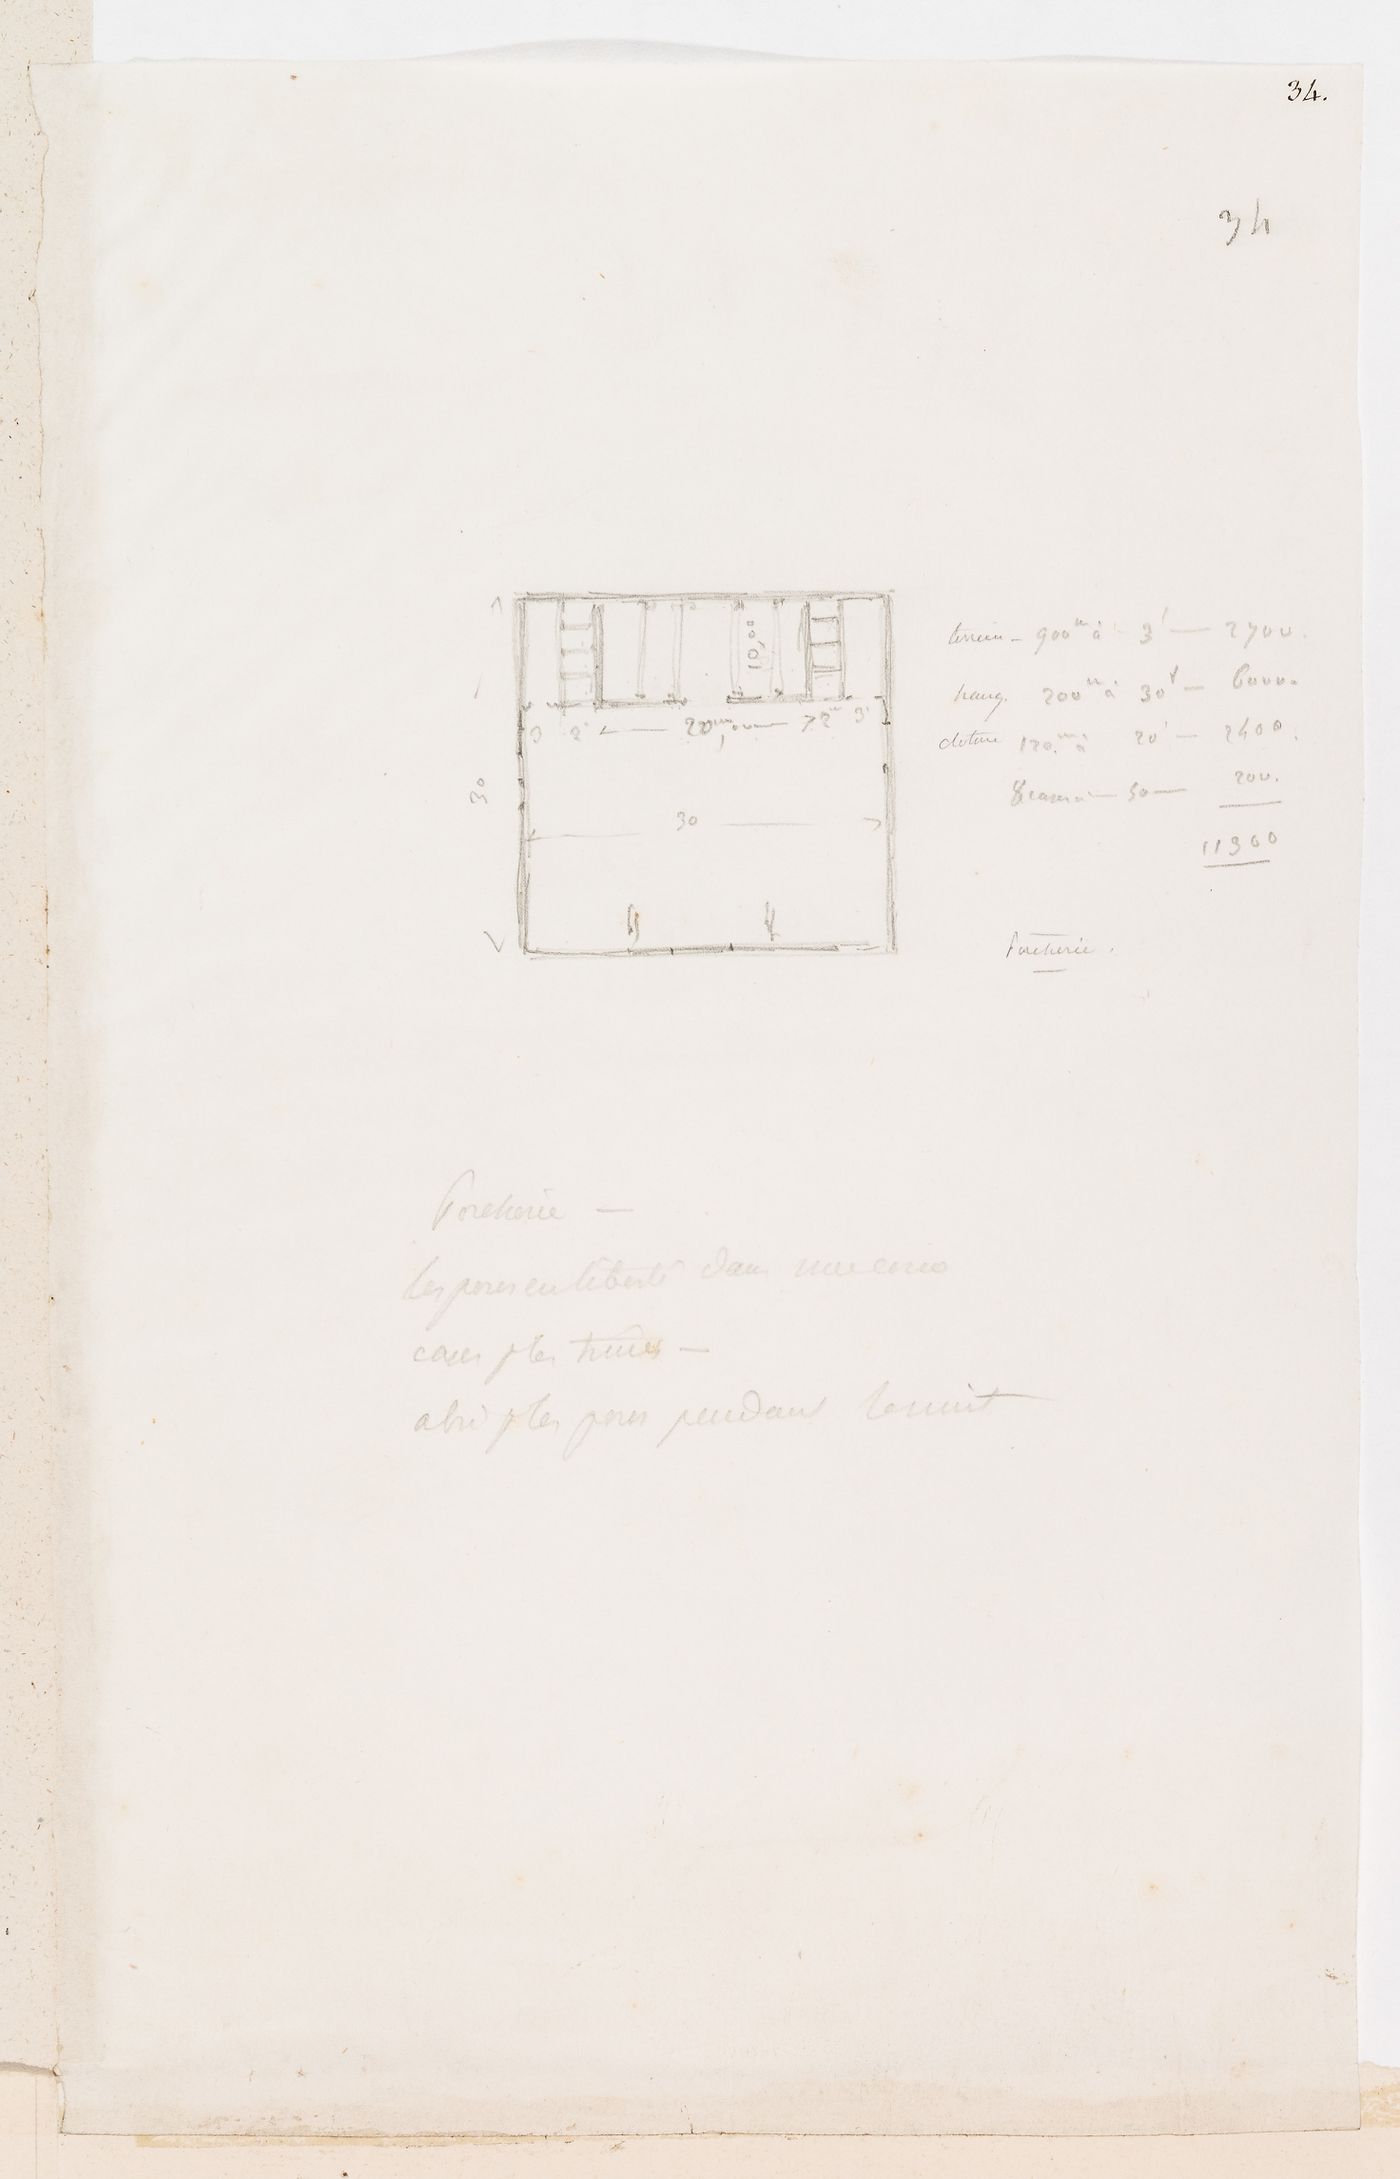 34.
34
10,00
3 2 20m,00 2m 3
30
30
terrain - 900m à 3f — 2700.
hang. 200m à 30f — 6000.
cloture 120m à 20f — 2400.
8 cases à — 50 — 200.
11300
Porcherie.
Porcherie —
les porcs en liberté dans une
cases p les truies —
abri p les porcs pendant la nuit